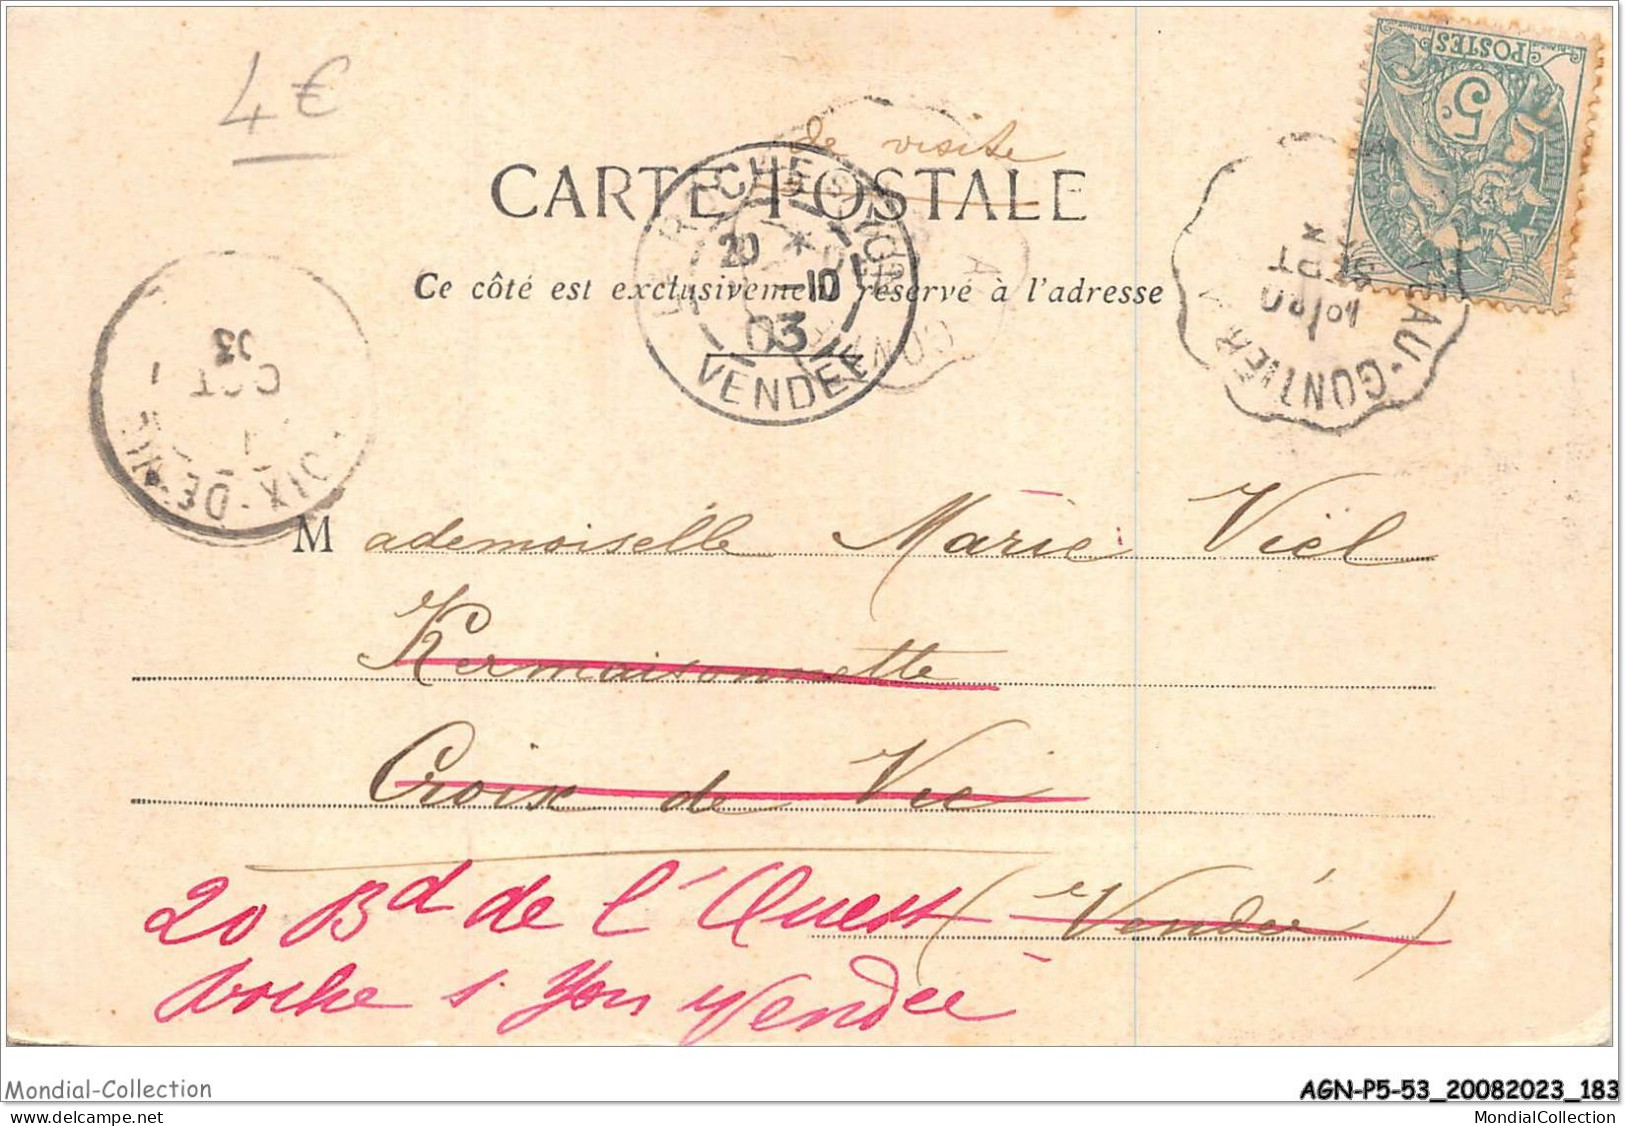 4€
POSTES
5c
de visite
CARTE POSTALE
LA ROCHE S YON
20 * 1-10
03
VENDÉE
Ce côté est exclusivement réservé à l'adresse
EAU-GONTIER
SEPT
OCT
03
OIX-DE-VIE
Mademoiselle Marie Viel
Kermaisonnette
Croix de Vie
20 Bd de l'Ouest (Vendée)
Roche s Yon Vendée
Mondial-Collection
AGN-P5-53_20082023_183
www.delcampe.net
MondialCollection